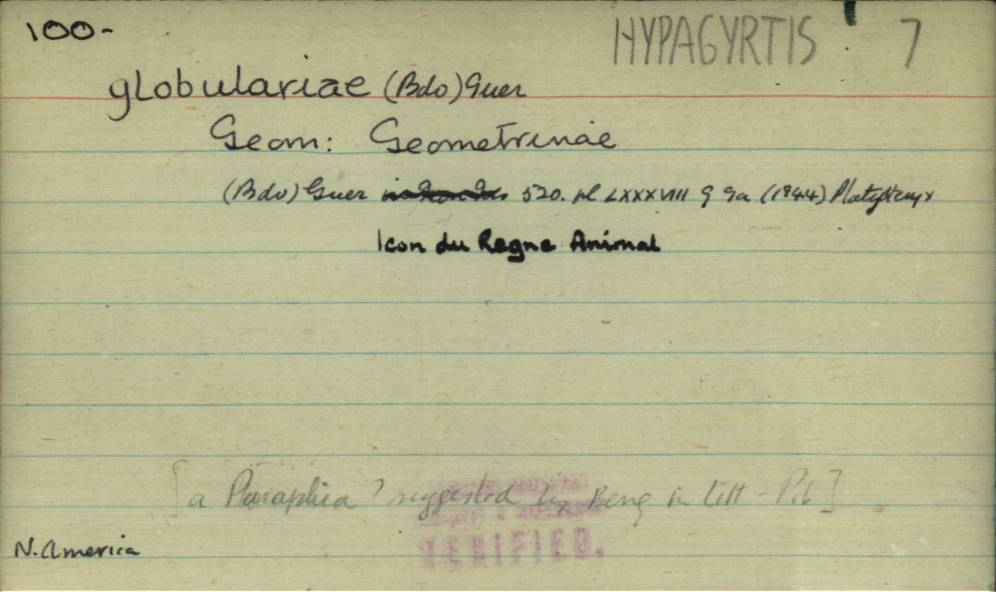 100-
HYPAGYRTIS 7
globulariae (Bdo) Guer
Geom: Geometrinae
(Bdo) Guer 520. pl LXXXVIII 9 9a (1944) Platypteryx
Icon du Regne Animal
[a ? suggested by Beng in litt -
VERIFIED.
N. America